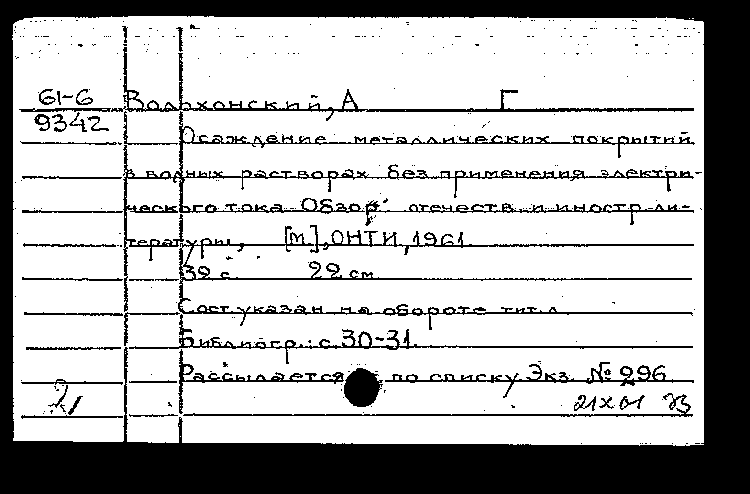 61-6 Вольхонский, А Г
9342
Осаждение металлических покрытий
в водных растворах без применения электри-
ческого тока Обзор отечеств. и иностр. ли-
тературы, [М.], ОНТИ, 1961.
32 с. 22 см
Сост. указан на обороте тит. л.
Библиогр.: с. 30-31.
Рассылается по списку. Экз. № 296